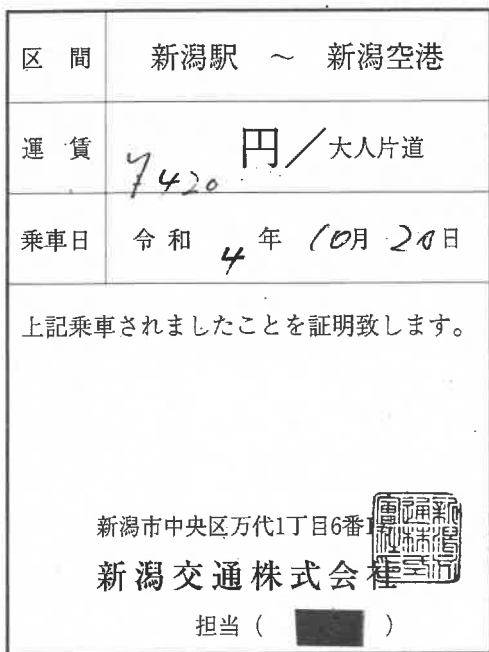 区間 新潟駅 ～ 新潟空港
運賃 ¥420 円／大人片道
乗車日 令和 4 年 10月 20日
上記乗車されましたことを証明致します。
新潟市中央区万代1丁目6番1号
新潟交通株式会社
担当（ ）